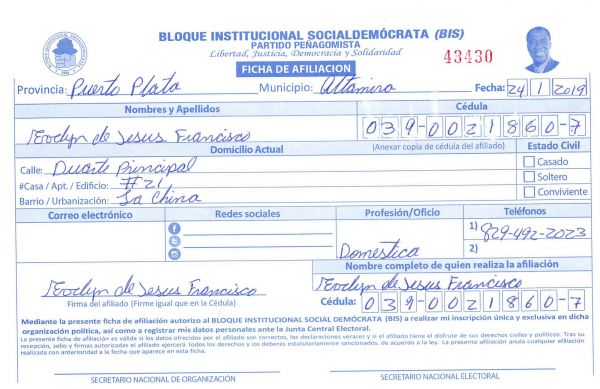 BLOQUE INSTITUCIONAL SOCIALDEMÓCRATA (BIS)
PARTIDO PEÑAGOMISTA
Libertad, Justicia, Democracia y Solidaridad
43430
FICHA DE AFILIACION
Provincia: Puerto Plata Municipio: Altamira Fecha: 24/1/2019
Nombres y Apellidos Cédula
Evoclyn de Jesus Francisco 039-0021860-7
Domicilio Actual (Anexar copia de cédula del afiliado) Estado Civil
Calle: Duarte Principal Casado
#Casa / Apt. / Edificio: #21 Soltero
Barrio / Urbanización: La China Conviviente
Correo electrónico Redes sociales Profesión/Oficio Teléfonos
1) 829-492-2023
Domestica 2)
Nombre completo de quien realiza la afiliación
Evoclyn de Jesus Francisco Evoclyn de Jesus Francisco
Firma del afiliado (Firme igual que en la Cédula) Cédula: 039-0021860-7
Mediante la presente ficha de afiliación autorizo al BLOQUE INSTITUCIONAL SOCIAL DEMÓCRATA (BIS) a realizar mi inscripción única y exclusiva en dicha
organización política, así como a registrar mis datos personales ante la Junta Central Electoral.
La presente ficha de afiliación es válida si los datos ofrecidos por el afiliado son correctos, las declaraciones veraces y si el afiliado tiene el disfrute de sus derechos civiles y políticos. Tras su
recepción, sello y firmas autorizadas el afiliado ejercerá todos los derechos y los deberes estatutariamente sancionados, de acuerdo a la ley. La presente afiliación anula cualquier afiliación
realizada con anterioridad a la fecha que aparece en esta ficha.
SECRETARIO NACIONAL DE ORGANIZACIÓN SECRETARIO NACIONAL ELECTORAL